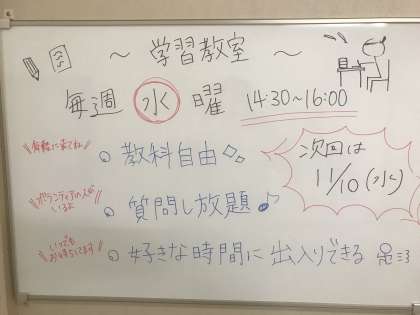 ～ 学習教室 ～
毎週 水 曜 14:30～16:00
気軽に来てね
教科自由
次回は
11/10(水)
ボランティアの人が
いるよ
質問し放題♪
いつでも
お待ちしてます
好きな時間に出入りできる